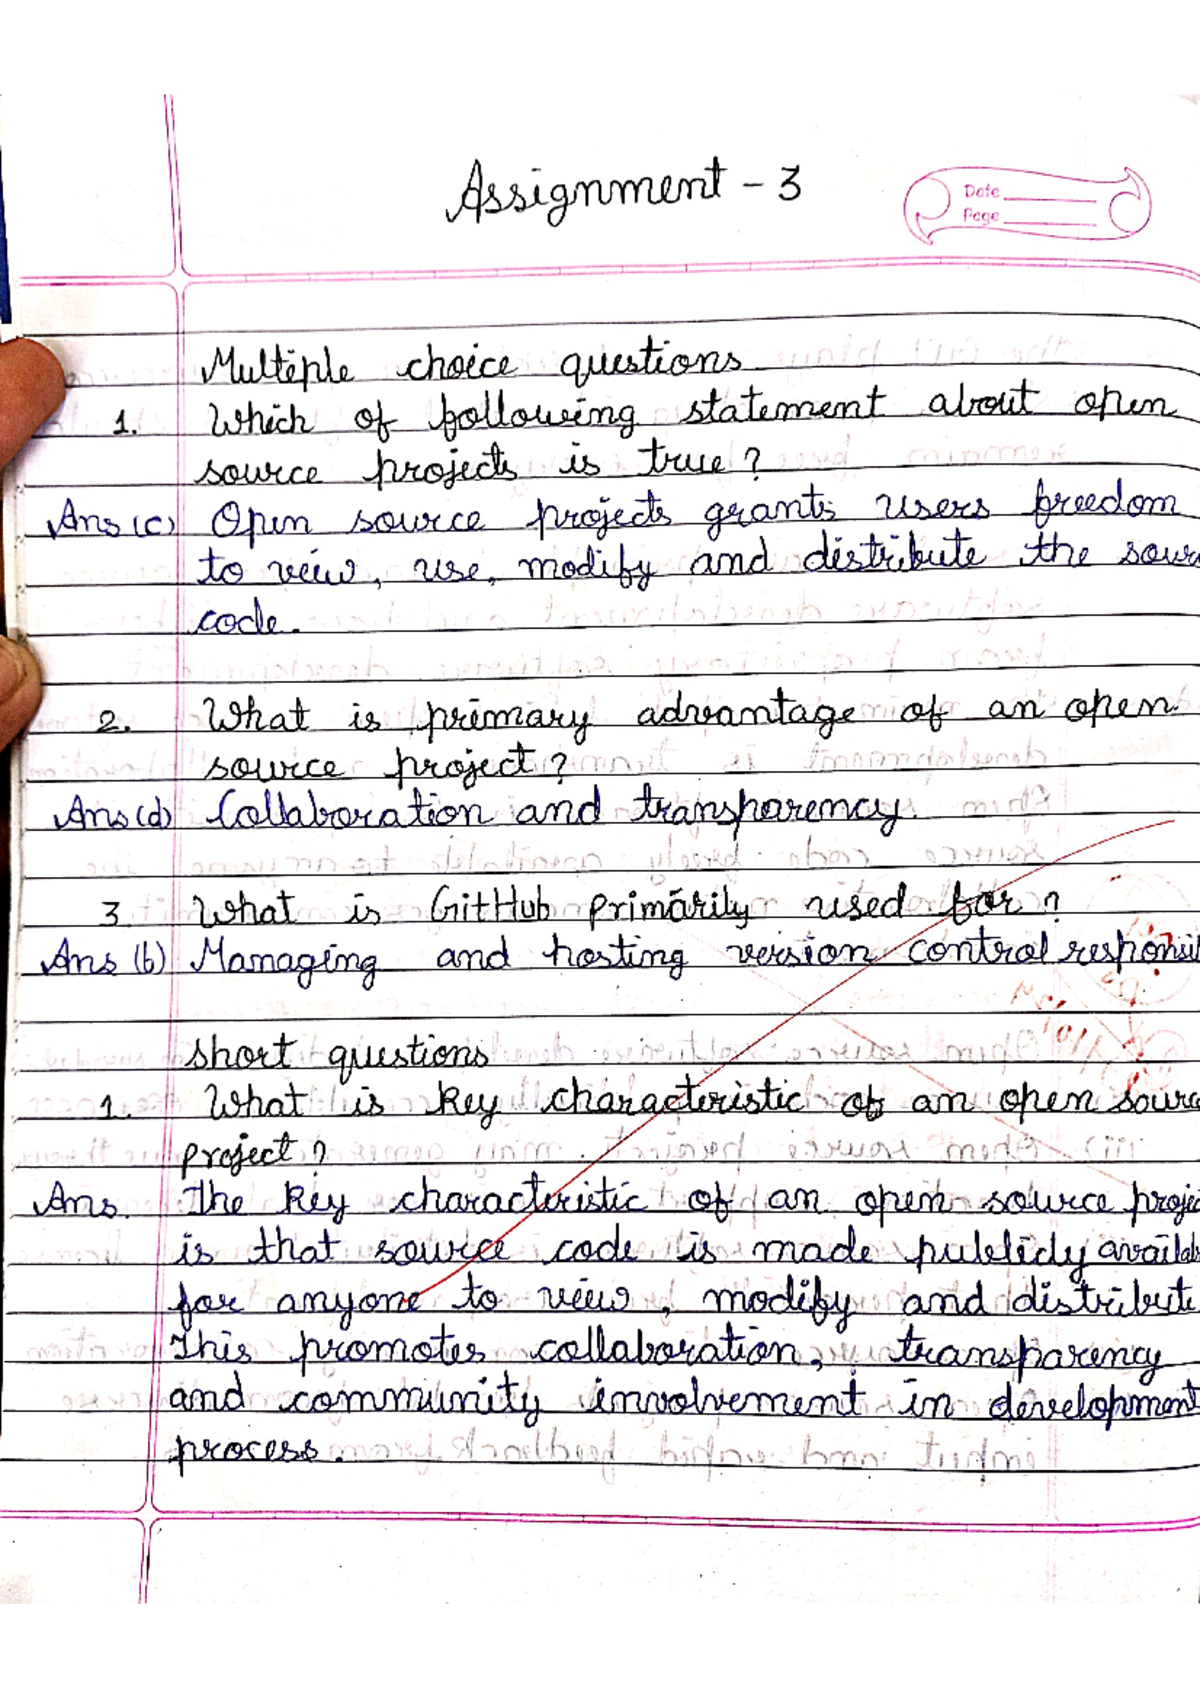 Assignment - 3
Date
Page
Multiple choice questions
1. Which of following statement about open
source projects is true?
Ans (c) Open source projects grants users freedom
to view, use, modify and distribute the sourc
code.
2. What is primary advantage of an open
source project?
Ans (d) Collaboration and transparency.
3 What is GitHub primarily used for?
Ans (b) Managing and hosting version control responsi
short questions
1. What is key characteristic of an open sourc
project?
Ans. The key characteristic of an open source projec
is that source code is made publicly availab
for anyone to view, modify and distribute
This promotes collaboration, transparency
and community involvement in development
process.